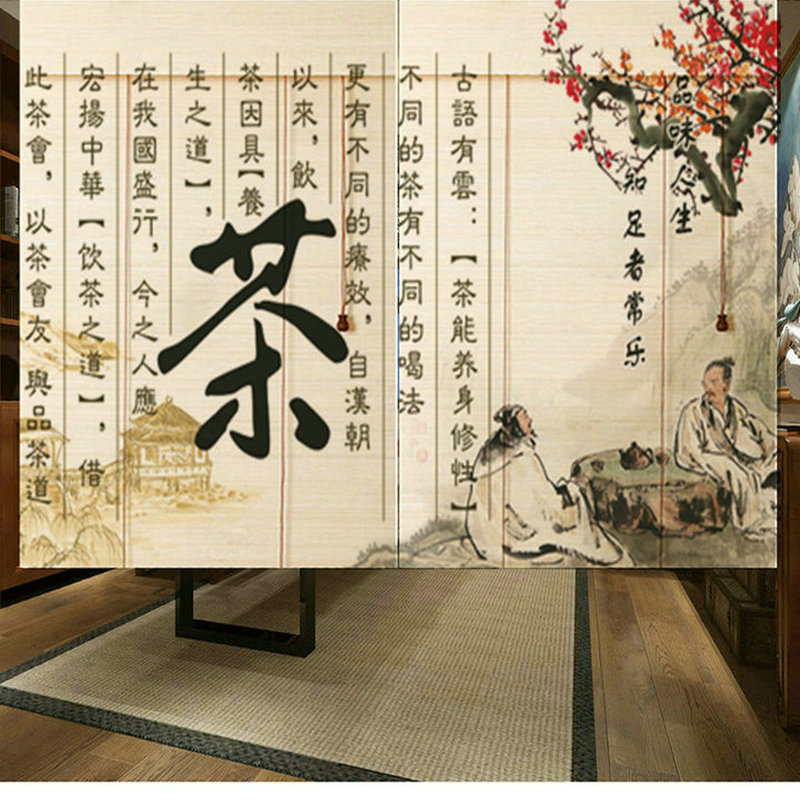 品味人生
知足者常乐
古語有雲：【茶能养身修性】
不同的茶有不同的喝法
更有不同的療效，自漢朝
以來，飲
茶因具【養
生之道】，
在我國盛行，今之人應
宏揚中華【饮茶之道】，借
此茶會，以茶會友 與品茶道
茶